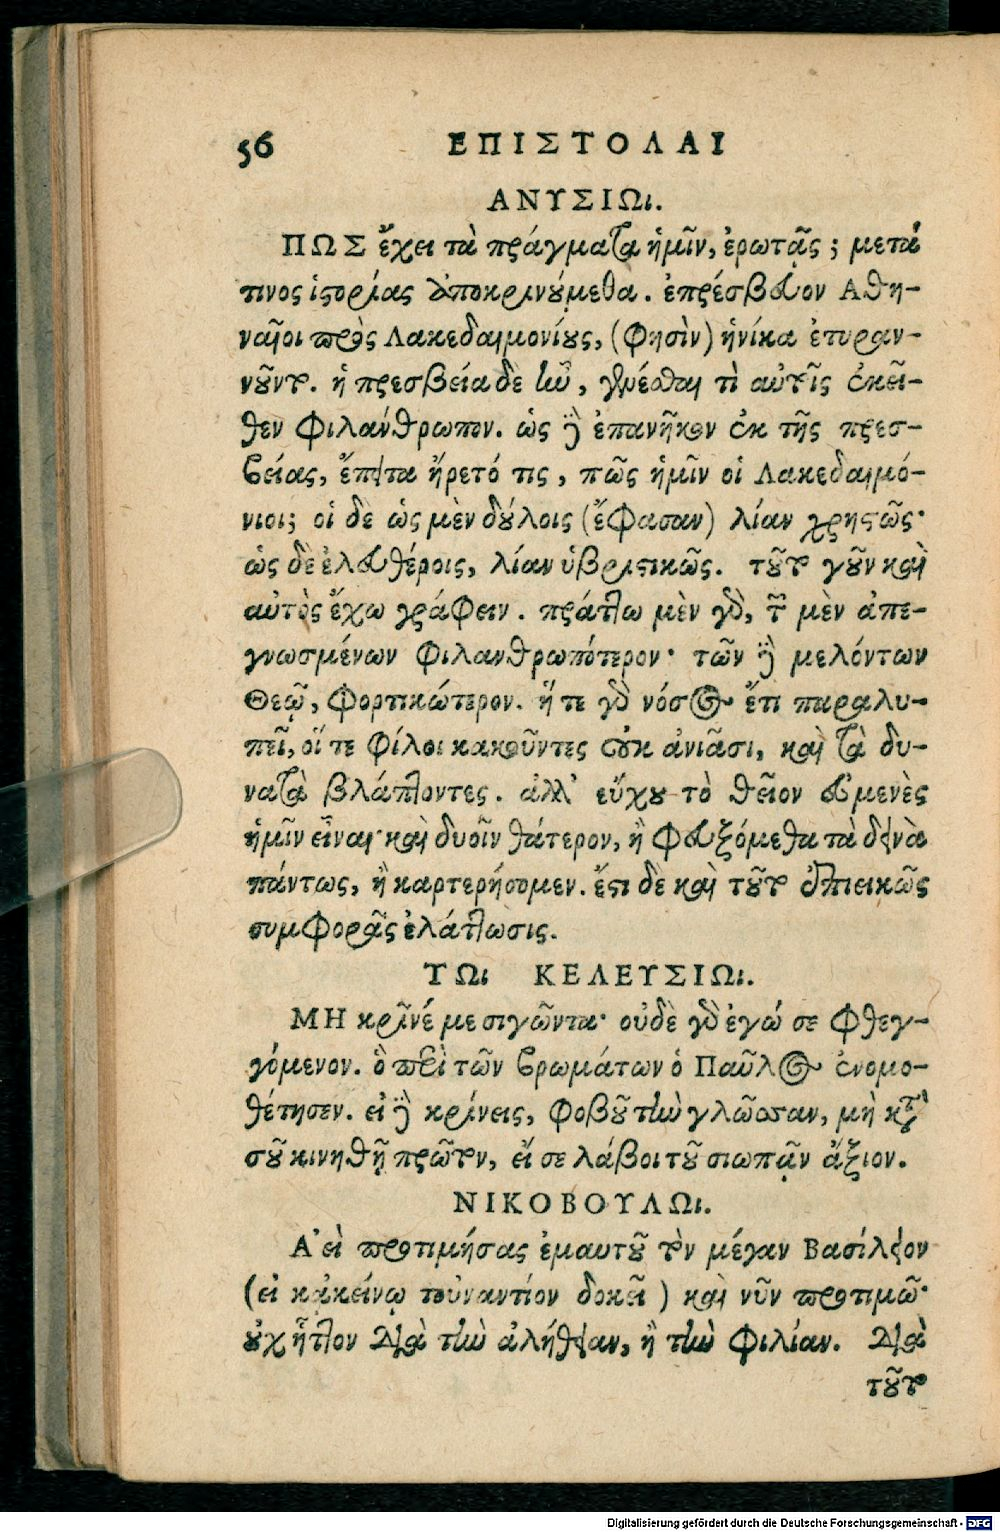 56 ΕΠΙΣΤΟΛΑΙ
ΑΝΥΣΙΩι.
ΠΩΣ ἔχει τὰ πράγματα ἡμῖν, ἐρωτᾷς; μετά
τινος ἱστορίας ἀποκρινούμεθα. ἐπρέσβευον Ἀθη-
ναῖοι πρὸς Λακεδαιμονίους, (φησὶν) ἡνίκα ἐτυραν-
νοῦντο. ἡ πρεσβεία δὲ ἦν, γενέσθαι τὶ αὐτοῖς ἐκεῖ-
θεν φιλάνθρωπον. ὡς δὲ ἐπανῆκον ἐκ τῆς πρεσ-
βείας, ἔπειτα ἤρετό τις, πῶς ἡμῖν οἱ Λακεδαιμό-
νιοι; οἱ δὲ ὡς μὲν δούλοις (ἔφασαν) λίαν χρηστῶς·
ὡς δὲ ἐλευθέροις, λίαν ὑβριστικῶς. τοῦτο γοῦν καὶ
αὐτὸς ἔχω γράφειν. πράττω μὲν γὰρ, τῶν μὲν ἀπε-
γνωσμένων φιλανθρωπότερον· τῶν δὲ μελόντων
Θεῷ, φορτικώτερον. ἥ τε γὰρ νόσος ἔτι παραλυ-
πεῖ, οἵ τε φίλοι κακοῦντες οὐκ ἀνιᾶσι, καὶ τὰ δυ-
νατὰ βλάπτοντες. ἀλλ' εὔχου τὸ θεῖον εὐμενὲς
ἡμῖν εἶναι· καὶ δυοῖν θάτερον, ἢ φευξόμεθα τὰ δεινὰ
πάντως, ἢ καρτερήσομεν. ἔστι δὲ καὶ τοῦτο ἐπιεικῶς
συμφορᾶς ἐλάττωσις.
ΤΩι ΚΕΛΕΥΣΙΩι.
ΜΗ κρῖνέ με σιγῶντα· οὐδὲ γὰρ ἐγώ σε φθεγ-
γόμενον. ὃ περὶ τῶν βρωμάτων ὁ Παῦλος ἐνομο-
θέτησεν. εἰ δὲ κρίνεις, φοβοῦ τὴν γλῶσσαν, μὴ κατὰ
σοῦ κινηθῇ πρῶτον, εἴ σε λάβοι τοῦ σιωπᾷν ἄξιον.
ΝΙΚΟΒΟΥΛΩι.
Ἀεὶ προτιμήσας ἐμαυτοῦ τὸν μέγαν Βασίλειον
(εἰ κᾀκείνῳ τοὐναντίον δοκεῖ) καὶ νῦν προτιμῶ·
οὐχ ἧττον διὰ τὴν ἀλήθειαν, ἢ τὴν φιλίαν. διὰ
τοῦτο
Digitalisierung gefördert durch die Deutsche Forschungsgemeinschaft - DFG